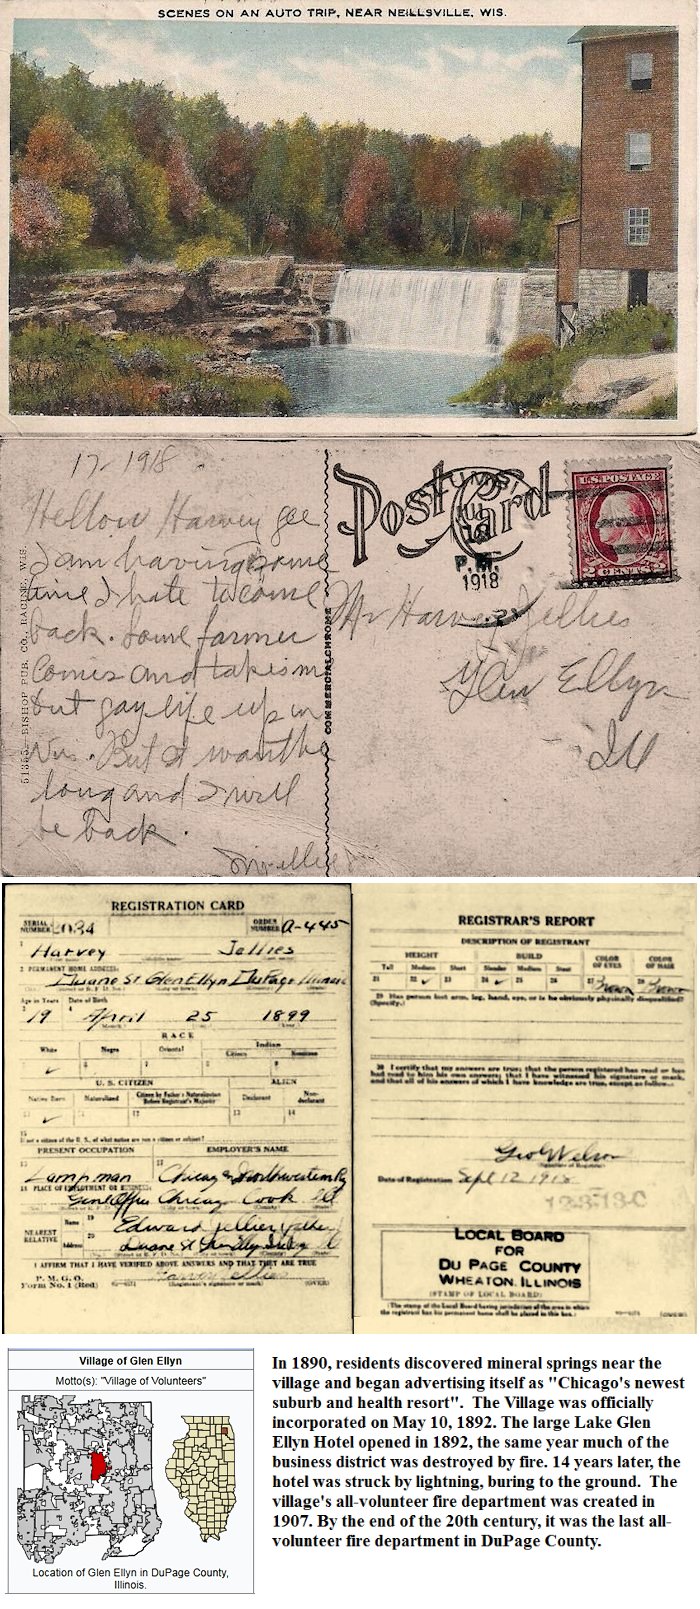 SCENES ON AN AUTO TRIP, NEAR NEILLSVILLE, WIS.
17-1918
Hellow Harvey gee
I am having some
time I hate to come
back. Some farmer
Comis and takeis me
but gay life up in
Wis. But I wont be
long and I will
be back.
51355 BISHOP PUB. CO., RACINE, WIS.
COMMERCIALCHROME
Post Card
JUL
P.M.
1918
U.S. POSTAGE
2 CENTS 2
Mr Harvey Jellies
Glen Ellyn
Ill
REGISTRATION CARD
SERIAL NUMBER 2034
ORDER NUMBER A-445
1 Harvey Jellies
2 PERMANENT HOME ADDRESS:
Duane St Glen Ellyn DuPage Illinois
Age in Years Date of Birth
19 April 25 1899
RACE
White Negro Oriental Indian
Citizen Noncitizen
U. S. CITIZEN ALIEN
Native Born Naturalized Citizen by Father's Naturalization Before Registrant's Majority Declarant Non-declarant
10 11 12 13 14
15
If not a citizen of the U. S., of what nation are you a citizen or subject?
PRESENT OCCUPATION EMPLOYER'S NAME
Lampman Chicago Northwestern Ry
18 PLACE OF EMPLOYMENT OR BUSINESS:
Genl Office Chicago Cook Ill
NEAREST RELATIVE
Name 19 Edward Jellies father
Address 20 Duane St
I AFFIRM THAT I HAVE VERIFIED ABOVE ANSWERS AND THAT THEY ARE TRUE
P. M. G. O.
Form No. 1 (Red)
(Registrant's signature or mark) (OVER)
REGISTRAR'S REPORT
DESCRIPTION OF REGISTRANT
HEIGHT BUILD COLOR OF EYES COLOR OF HAIR
Tall Medium Short Slender Medium Stout
21 22 23 24 25 26 27 Brown 28 Brown
29 Has person lost arm, leg, hand, eye, or is he obviously physically disqualified?
(Specify.)
30 I certify that my answers are true; that the person registered has read or has
had read to him his own answers; that I have witnessed his signature or mark,
and that all of his answers of which I have knowledge are true, except as follows:
Geo W Nelson
(Signature of Registrar)
Date of Registration Sept 12 1918
12-3-13-C
LOCAL BOARD
FOR
DU PAGE COUNTY
WHEATON, ILLINOIS
(STAMP OF LOCAL BOARD)
(The stamp of the Local Board having jurisdiction of the area in which
the registrant has his permanent home shall be placed in this box.)
Village of Glen Ellyn
Motto(s): "Village of Volunteers"
Location of Glen Ellyn in DuPage County,
Illinois.
In 1890, residents discovered mineral springs near the
village and began advertising itself as "Chicago's newest
suburb and health resort". The Village was officially
incorporated on May 10, 1892. The large Lake Glen
Ellyn Hotel opened in 1892, the same year much of the
business district was destroyed by fire. 14 years later, the
hotel was struck by lightning, buring to the ground. The
village's all-volunteer fire department was created in
1907. By the end of the 20th century, it was the last all-
volunteer fire department in DuPage County.